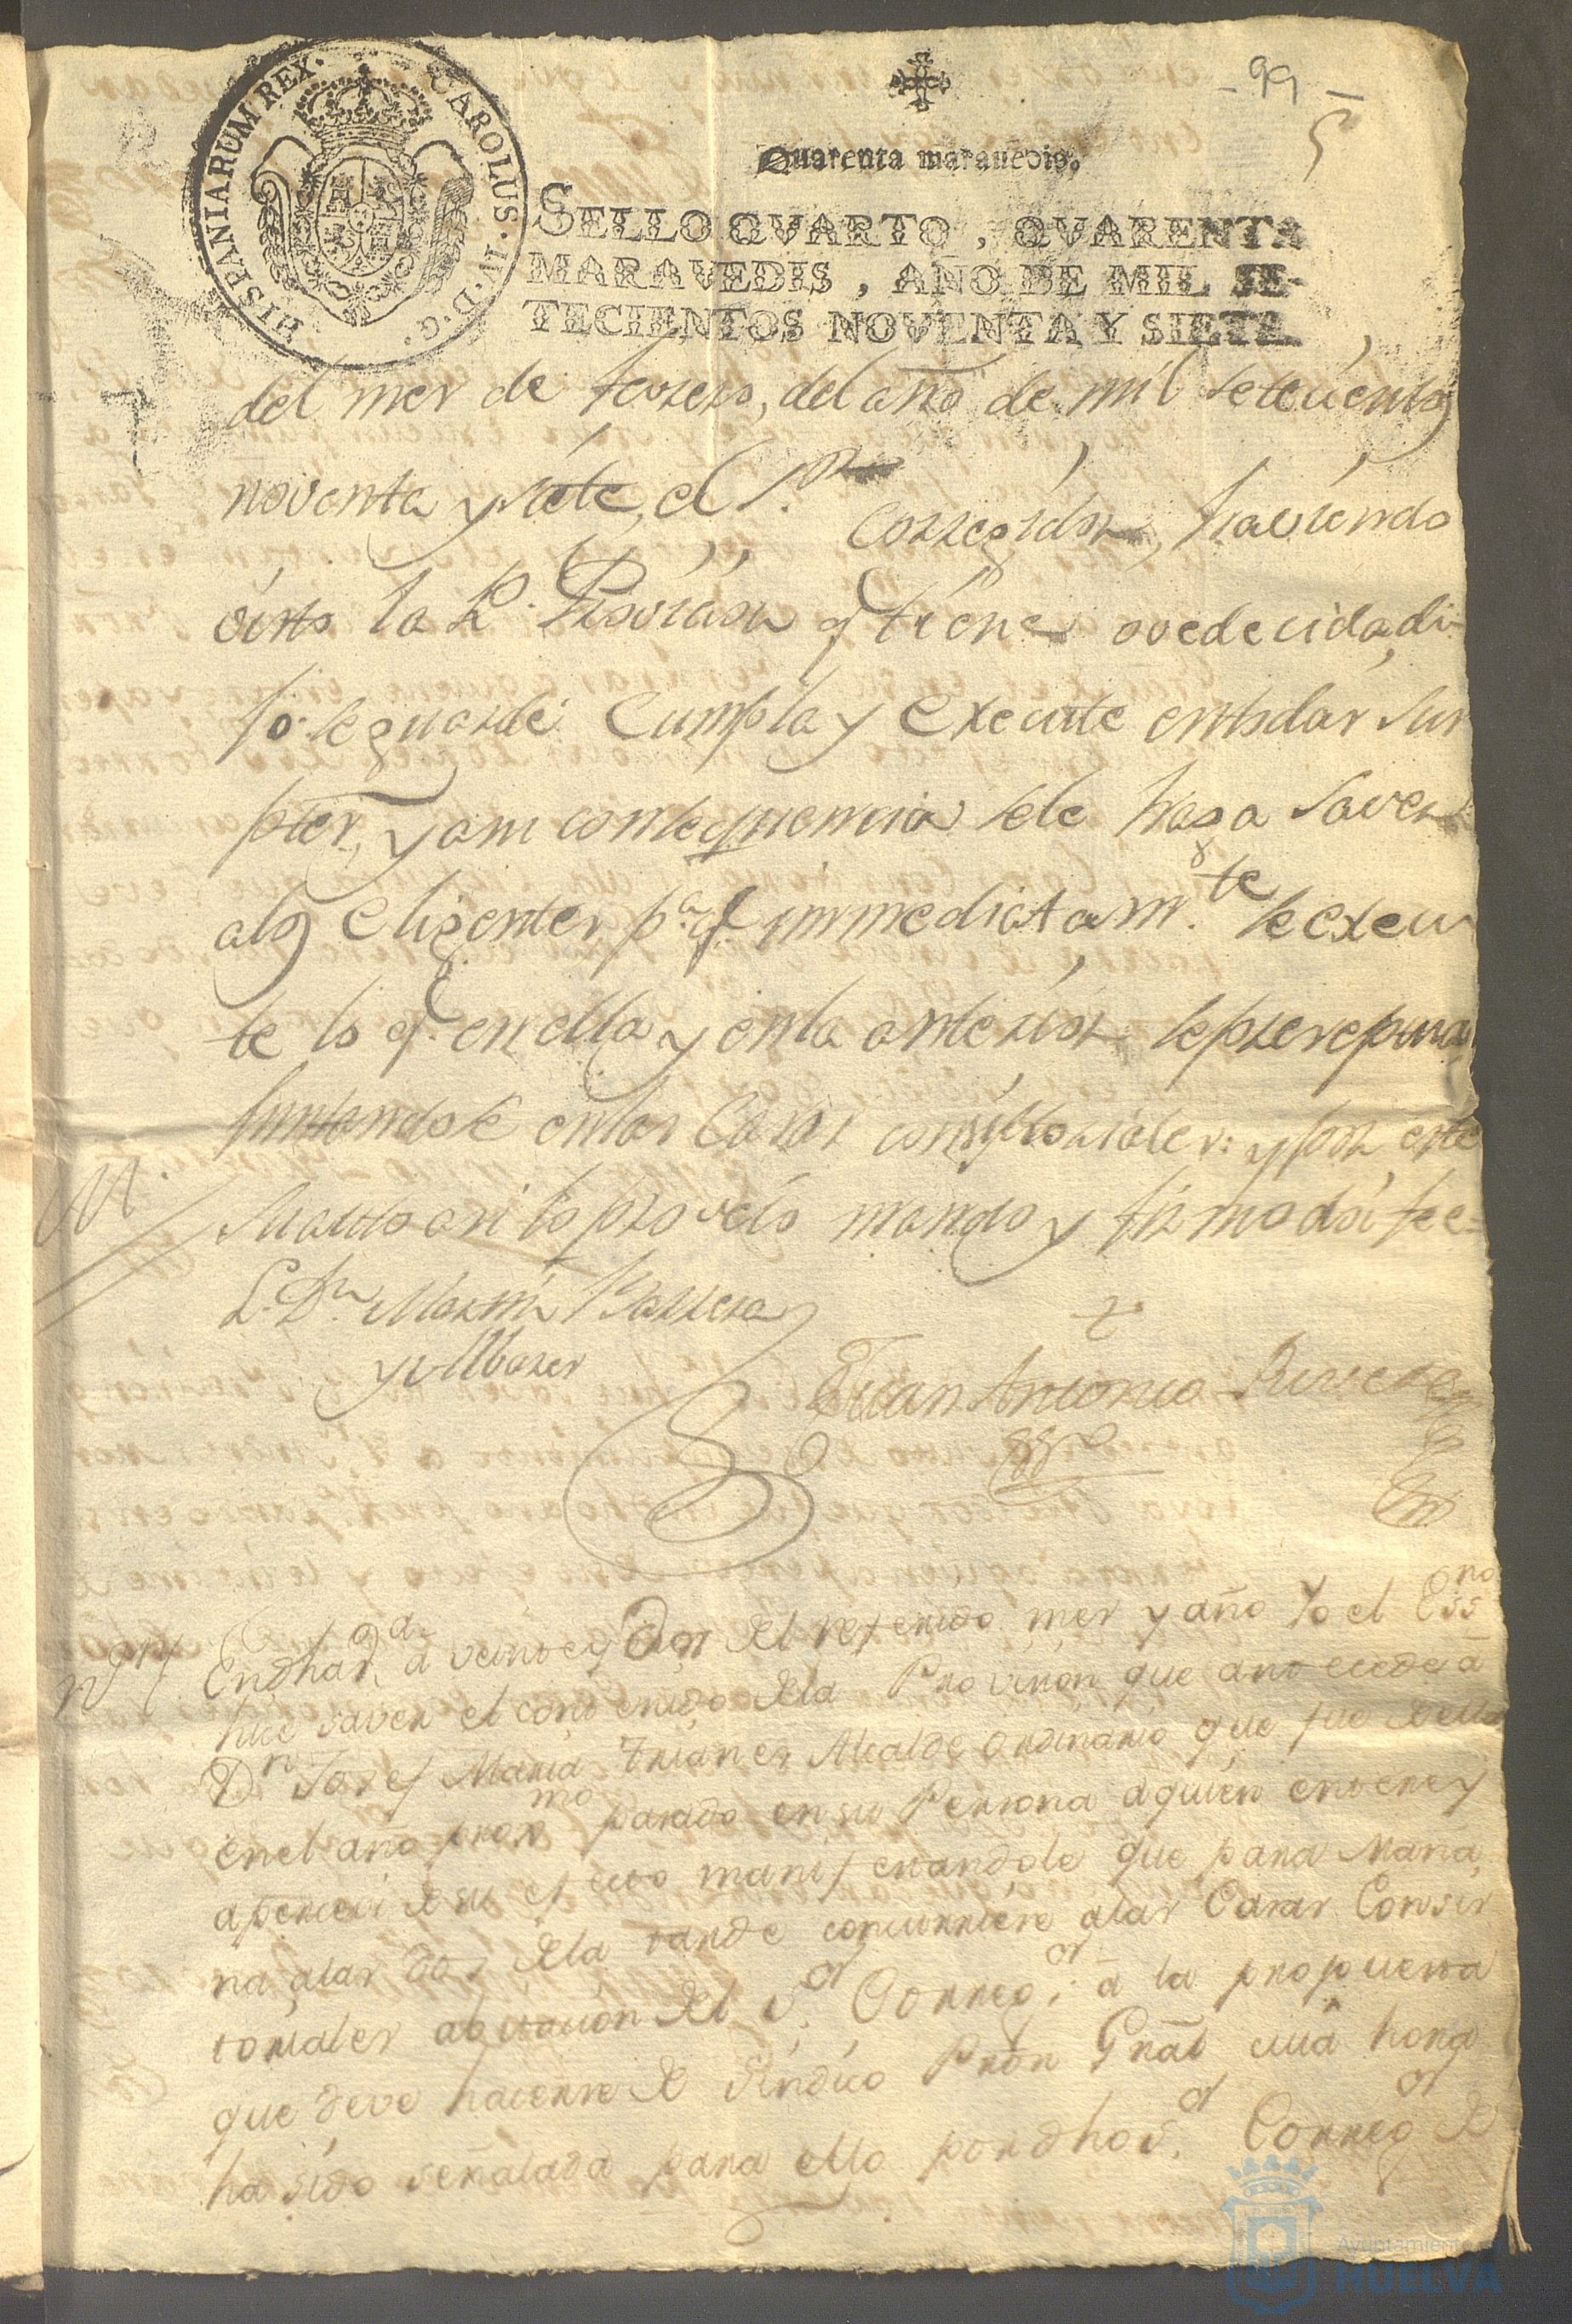 - 99 -
5
HISPANIARUM REX. CAROLUS. IV. D. G.
Quarenta maravedis.
SELLO QVARTO, QVARENTA
MARAVEDIS, AÑO DE MIL SE-
TECIENTOS NOVENTA Y SIETE.
del mes de febrero, del año de mil setecientos
noventa y siete, el S.or Corregidor, haviendo
visto la R.l Provision q.e tiene ovedecida, di-
jo se guarde Cumpla y Execute entodas sus
ptes, y asu consequencia sele haga saver
alos Eligentes p.a q.e immediatam.te se execu
te lo q.e en ella y enla anterior se
Juntandose enlas Casas consistoriales: y por este
su auto asi lo proveyo mando y firmo doi fee=
L. Dn Martin Barrera
Juan Antonio Rivera
Endha V.a a veinte y dos del referido mes y año Yo el Essno
hice saver el contenido dela Provision que antecede a
Dn Josef Maria Trianes Alcalde Ordinario que fue de ella
enel año proxmo pasado en su Persona a quien entere y
aperceví de su efecto manifestandole que para Maña
na alas dos dela tarde concurriese alas Casas Consis
toriales abitacion del S.or Correg.or a la propuesta
que deve hacerse de Sindico Pror Gñal cuia hora
ha sido señalada para ello por dho S.or Correg.or de
Ayuntamiento
HUELVA